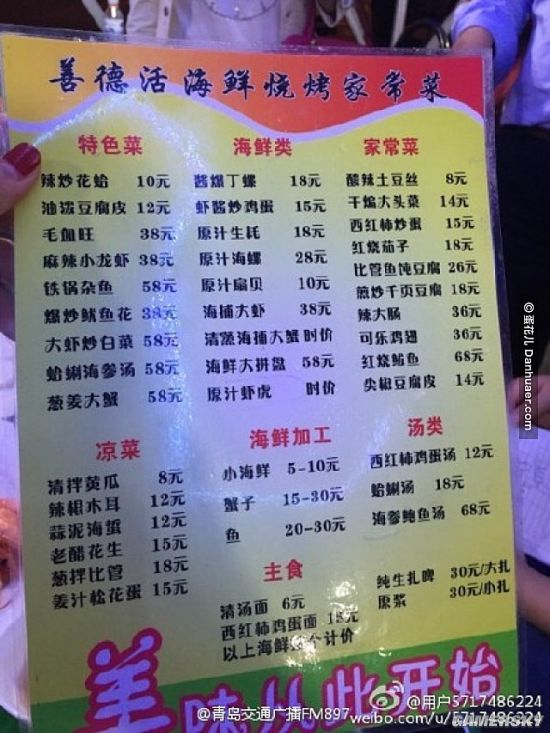 善德活海鲜烧烤家常菜
特色菜
辣炒花蛤 10元
油泼豆腐皮 12元
毛血旺 38元
麻辣小龙虾 38元
铁锅杂鱼 58元
爆炒鱿鱼花 38元
大虾炒白菜 58元
蛤蜊海参汤 58元
葱姜大蟹 58元
海鲜类
酱爆丁螺 18元
虾酱炒鸡蛋 15元
原汁生蚝 18元
原汁海螺 28元
原汁扇贝 10元
海捕大虾 38元
清蒸海捕大蟹 时价
海鲜大拼盘 58元
原汁虾虎 时价
家常菜
酸辣土豆丝 8元
干煸大头菜 14元
西红柿炒蛋 15元
红烧茄子 18元
比管鱼炖豆腐 26元
煎炒千页豆腐 18元
辣大肠 36元
可乐鸡翅 36元
红烧鲐鱼 68元
尖椒豆腐皮 14元
凉菜
清拌黄瓜 8元
辣根木耳 12元
蒜泥海蜇 12元
老醋花生 15元
葱拌比管 18元
姜汁松花蛋 15元
海鲜加工
小海鲜 5-10元
蟹子 15-30元
鱼 20-30元
主食
清汤面 6元
西红柿鸡蛋面 12元
以上海鲜按个计价
汤类
西红柿鸡蛋汤 12元
蛤蜊汤 18元
海参鲍鱼汤 68元
纯生扎啤 30元/大扎
原浆 30元/小扎
美味从此开始
@蛋花儿 Danhuaer.com
@用户5717486224
@青岛交通广播FM897 weibo.com/u/5717486224
GAMERSKY